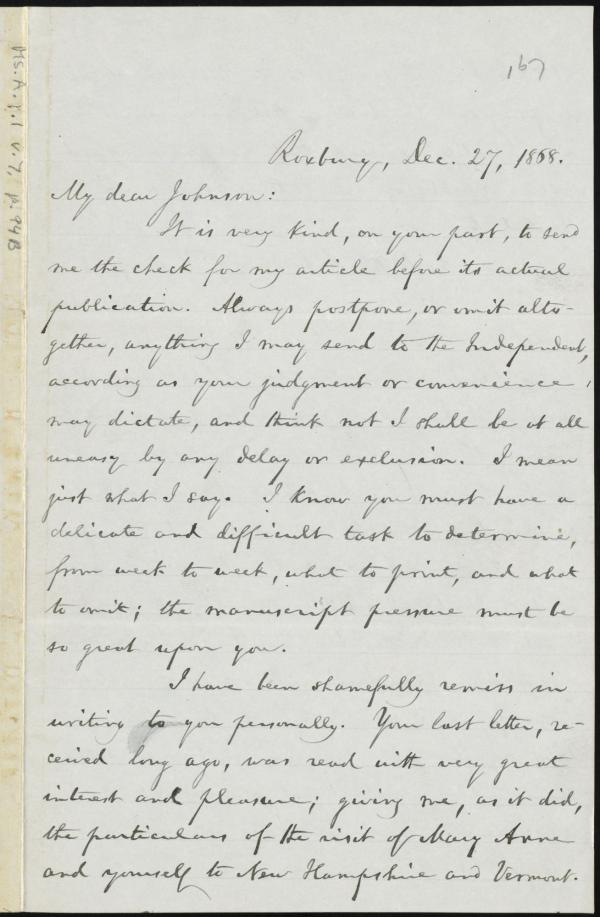 167
Ms. A. 1.1 v. 7, p. 94B
Roxbury, Dec. 27, 1868.
My dear Johnson:
It is very kind, on your part, to send
me the check for my article before its actual
publication. Always postpone, or omit alto-
gether, anything I may send to the Independent,
according as your judgment or convenience
may dictate, and think not I shall be at all
uneasy by any delay or exclusion. I mean
just what I say. I know you must have a
delicate and difficult task to determine,
from week to week, what to print, and what
to omit; the manuscript pressure must be
so great upon you.
I have been shamefully remiss in
writing to you personally. Your last letter, re-
ceived long ago, was read with very great
interest and pleasure; giving me, as it did,
the particulars of the visit of Mary Anne
and yourself to New Hampshire and Vermont.